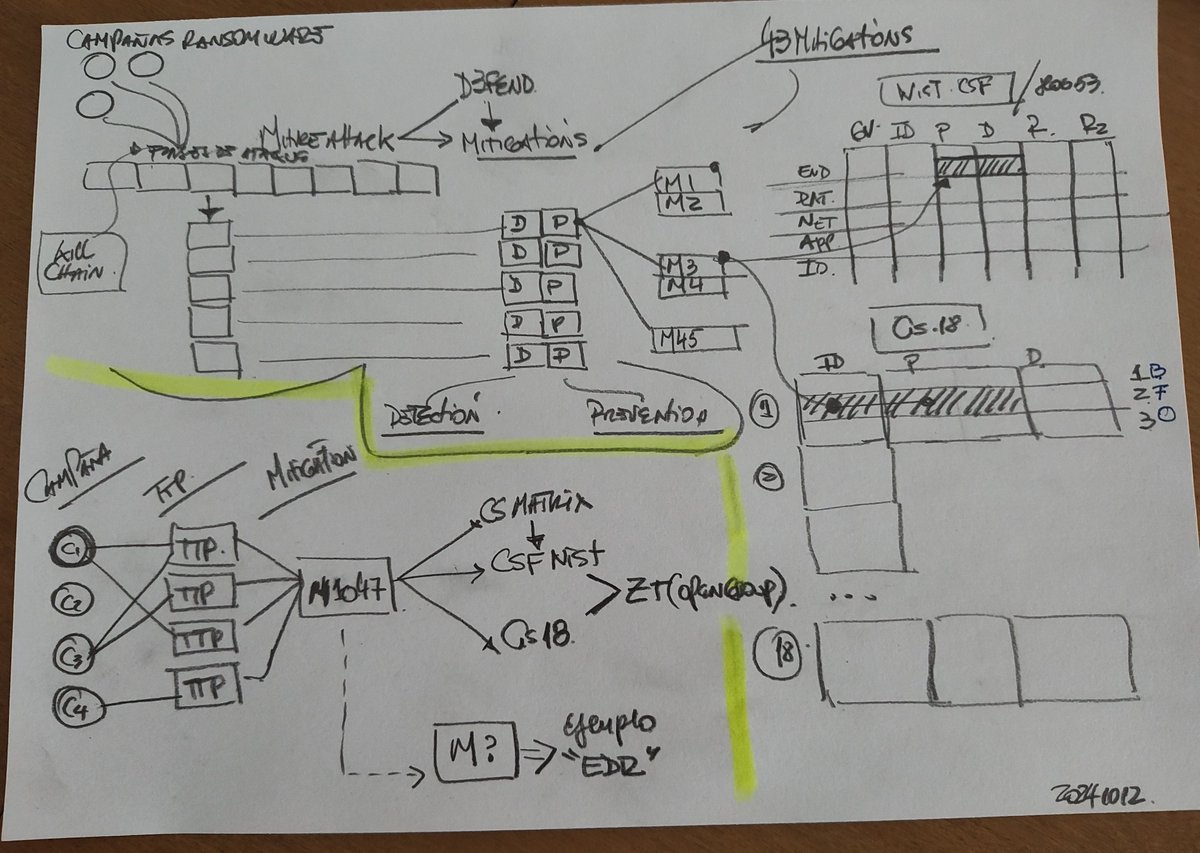 CAMPAÑAS RANSOMWARE
43 MITIGATIONS
D3FEND
MITRE ATTACK
MITIGATIONS
NIST. CSF
GV. ID P D R.
END
DAT.
NET
APP
ID.
KILL
CHAIN.
D P
D P
D P
D P
D P
M1
M2
M3
M4
M45
DETECTION
PREVENTION
Cis.18.
ID P D.
1 B
2. F
3 O
1
2
...
18
CAMPAÑA
TTP.
MITIGATION
C1
C2
C3
C4
TTP.
TTP
TTP
TTP
M1047
CS MATRIX
CSF NIST
Cis 18.
ZT (OPEN GROUP).
M?
Ejemplo
"EDR"
20241012.